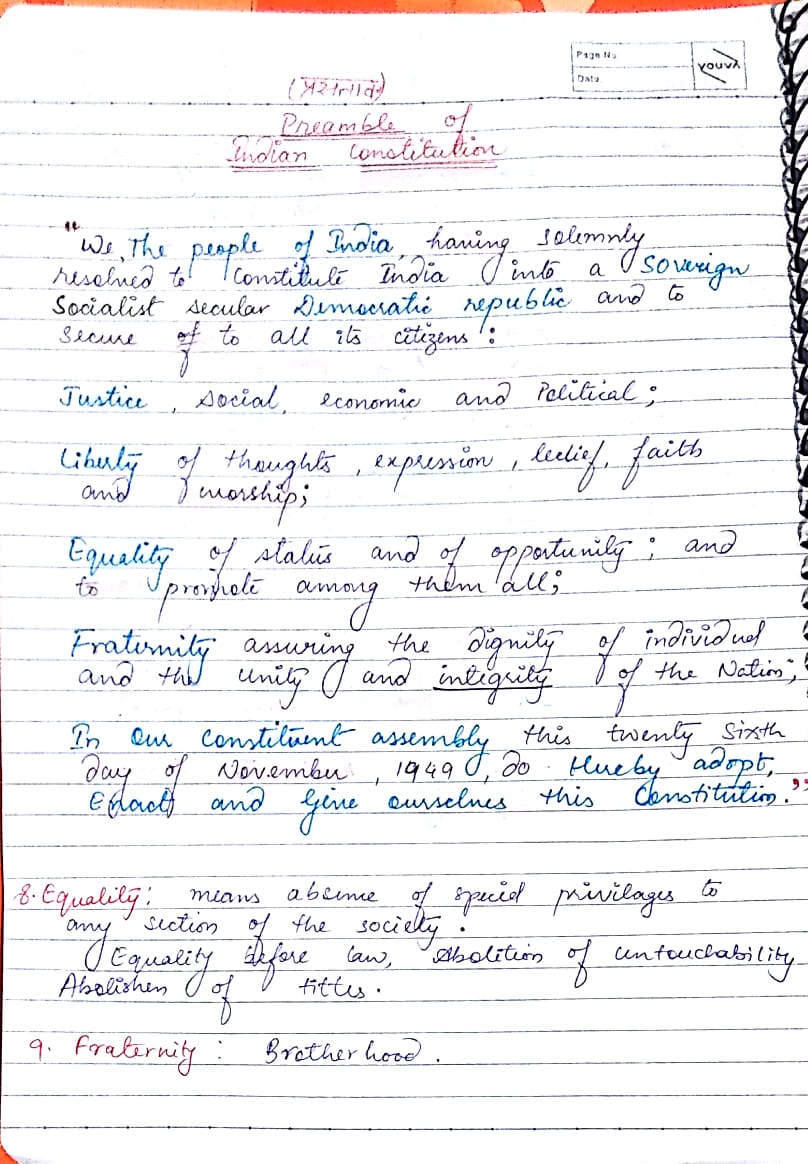 Page No.
Date
YOUVA
(प्रस्तावक)
Preamble of
Indian Constitution
"We, The people of India, having solemnly
resolved to constitute India into a soverign
Socialist secular Democratic republic and to
secure of to all its citizens :
Justice , social, economic and Political ;
Liberty of thoughts , expression , belief, faith
and worship;
Equality of status and of opportunity ; and
to promote among them all;
Fraternity assuring the dignity of individual
and the unity and integrity of the Nation;
In our constituent assembly this twenty Sixth
day of November , 1949 , do Hereby adopt,
Enact and Give ourselves this Constitution."
8. Equality: means absense of special privilages to
any section of the society .
Equality before law, Abolition of untouchability
Abolishen of tittes.
9. Fraternity : Brotherhood .